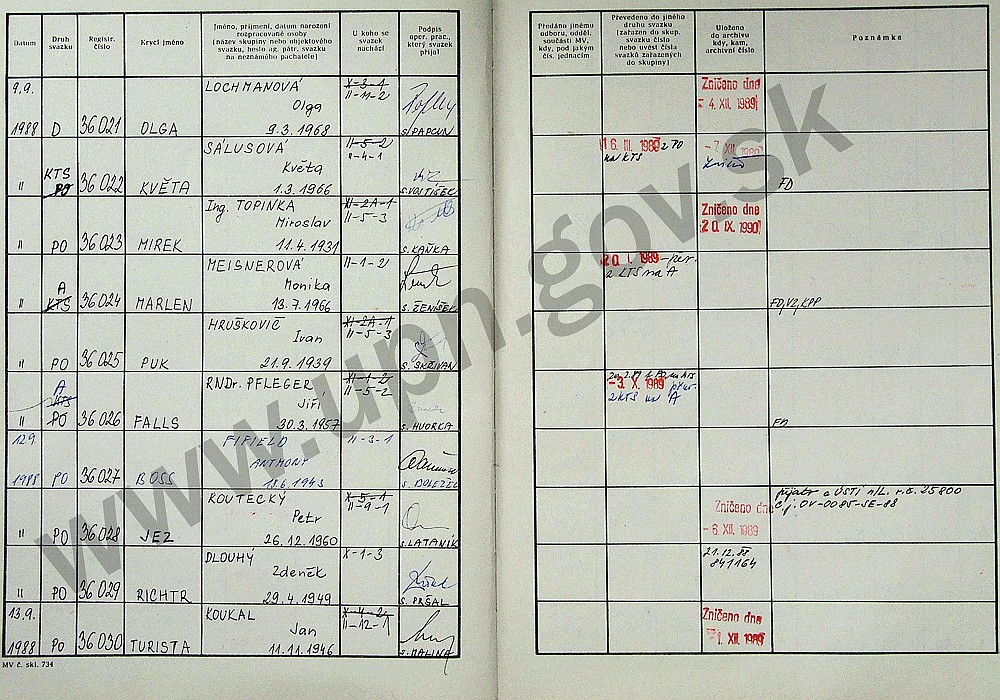 Datum
Druh svazku
Registr. číslo
Krycí jméno
Jméno, příjmení, datum narození
rozpracované osoby
(název skupiny nebo objektového
svazku, heslo ag. pátr. svazku
na neznámého pachatele)
U koho se
svazek
nachází
Podpis
oper. prac.,
který svazek
přijal
Předáno jinému
odboru, odděl.
součásti MV,
kdy, pod jakým
čís. jednacím
Převedeno do jiného
druhu svazku
(zařazen do skup.
svazku číslo
nebo uvést čísla
svazků zařazených
do skupiny)
Uloženo
do archivu
kdy, kam,
archivní číslo
Poznámka
9.9. LOCHMANOVÁ X-3-1 Zničeno dne
Olga II-11-2 - 4. XII. 1989
1988 D 36021 OLGA 9.3.1968 s. PAPCUN
SÁLUSOVÁ II-5-2 1 6. III. 1989 z PO
KTS Květa II-4-1 na KTS - 7. XII. 1989
" PO 36022 KVĚTA 1.3.1966 s. VOJTÍŠEK FD
Ing. TOPINKA XI-2A-1 Zničeno dne
Miroslav II-5-3 2 0. IX. 1990
" PO 36023 MIREK 11.4.1931 s. KAŇKA
MEISNEROVÁ II-1-2 2 0. I. 1989 - per.
A Monika z KTS na A
" KTS 36024 MARLEN 13.7.1966 s. ŽENÍŠEK FD, VZ, KPP
HRUŠKOVIČ XI-2A-1
Ivan II-5-3
" PO 36025 PUK 21.9.1939 s. SKŘIVAN
A RNDr. PFLEGER XI-1-2
KTS Jiří II-5-2 - 3. X. 1989 z KTS na A
" PO 36026 FALLS 30.3.1957 s. HVORKA FD
12.9. FIFIELD II-3-1
ANTHONY
1988 PO 36027 BOSS 18.6.1943 s. DOLEŽEL
KOUTECKÝ X-5-1 Zničeno dne přjatr z ÚSTÍ n/L. r.č. 25800
Petr II-9-1 - 6. XII. 1989 čj: OV-0085-SE-88
" PO 36028 JEZ 26.12.1960 s. LATANÍK
DLOUHÝ X-1-3 21.12.88
Zdeněk 841164
" PO 36029 RICHTR 29.4.1949 s. PRŠAL
13.9. KOUKAL X-4-2 Zničeno dne
Jan II-12-1 1. XII. 1989
1988 PO 36030 TURISTA 11.11.1946 s. MALINA
MV č. skl. 734
www.upn.gov.sk